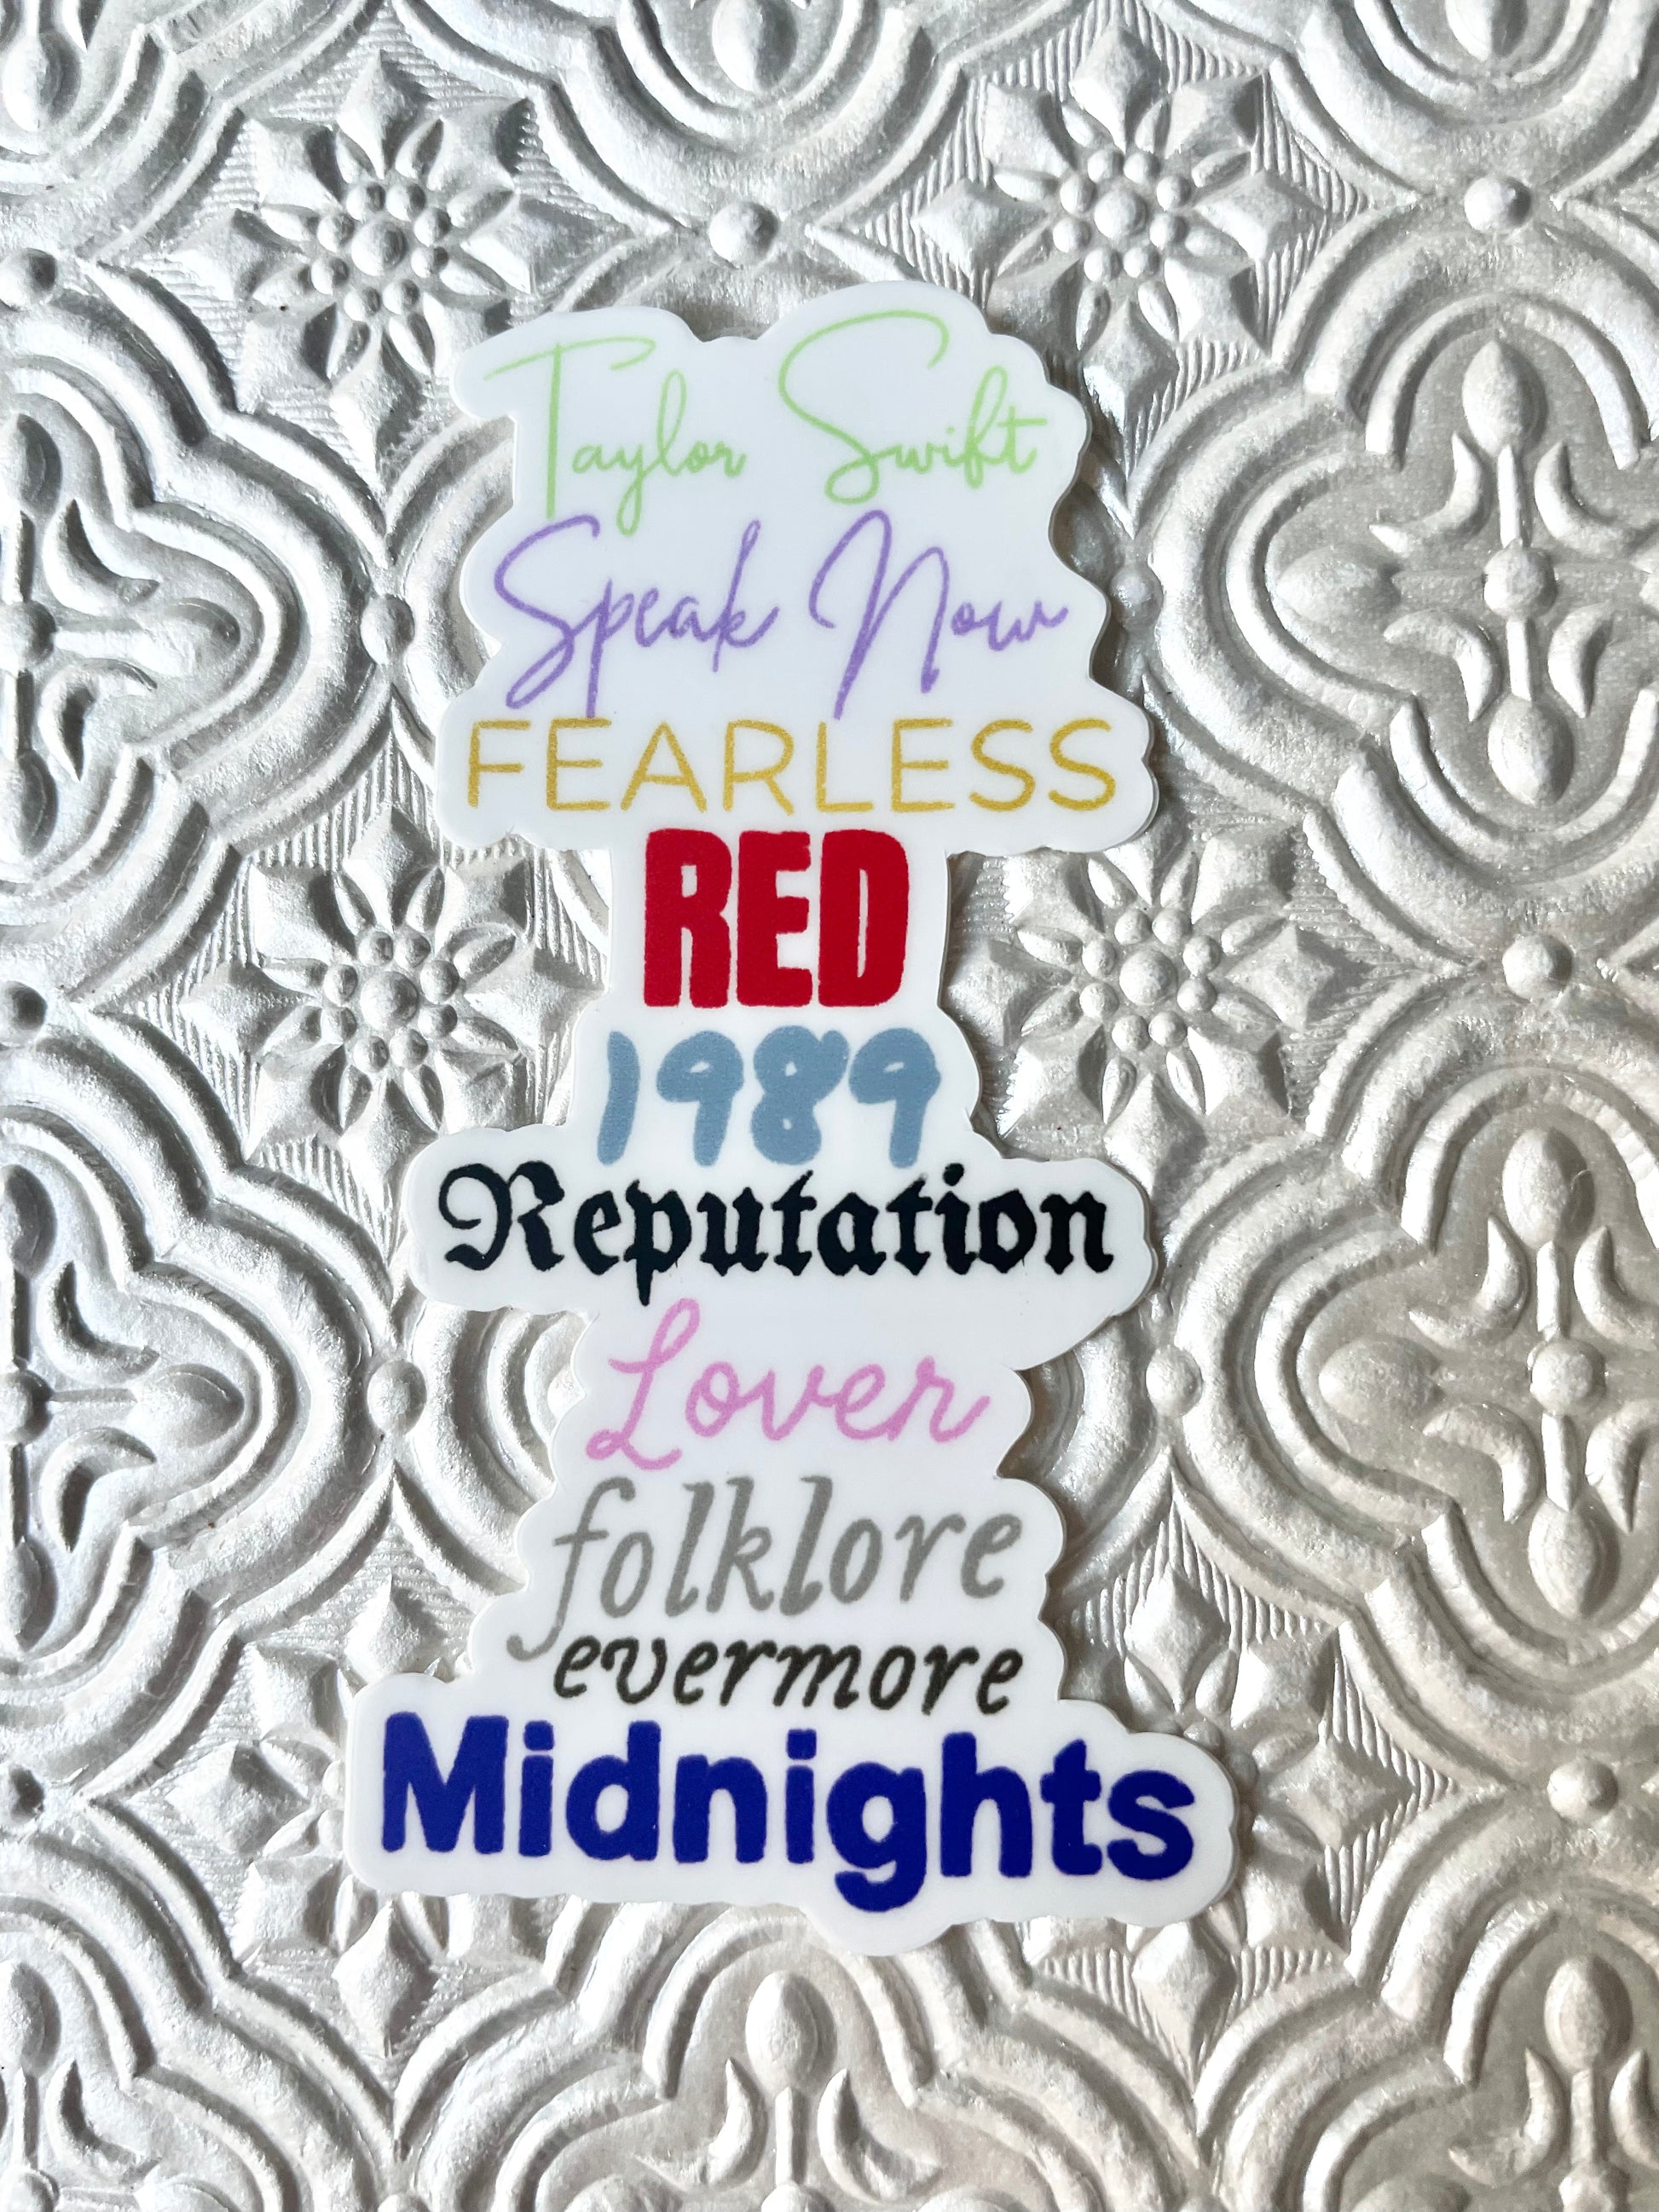 Taylor Swift
Speak Now
FEARLESS
RED
1989
Reputation
Lover
folklore
evermore
Midnights